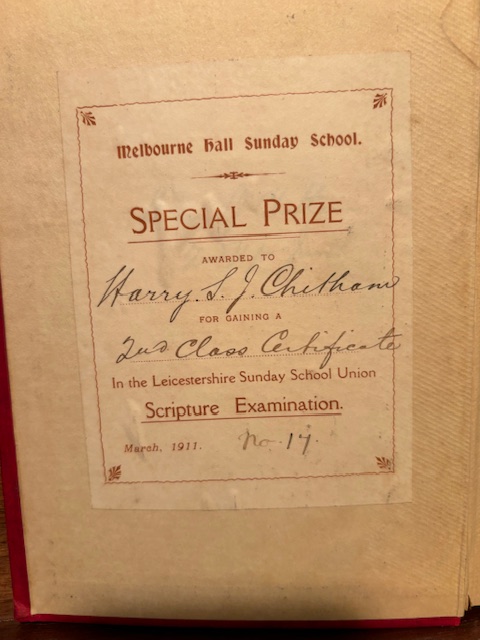 Melbourne Hall Sunday School.
SPECIAL PRIZE
AWARDED TO
Harry S. J. Chitham
FOR GAINING A
2nd Class Certificate
In the Leicestershire Sunday School Union
Scripture Examination.
March, 1911. No. 17.